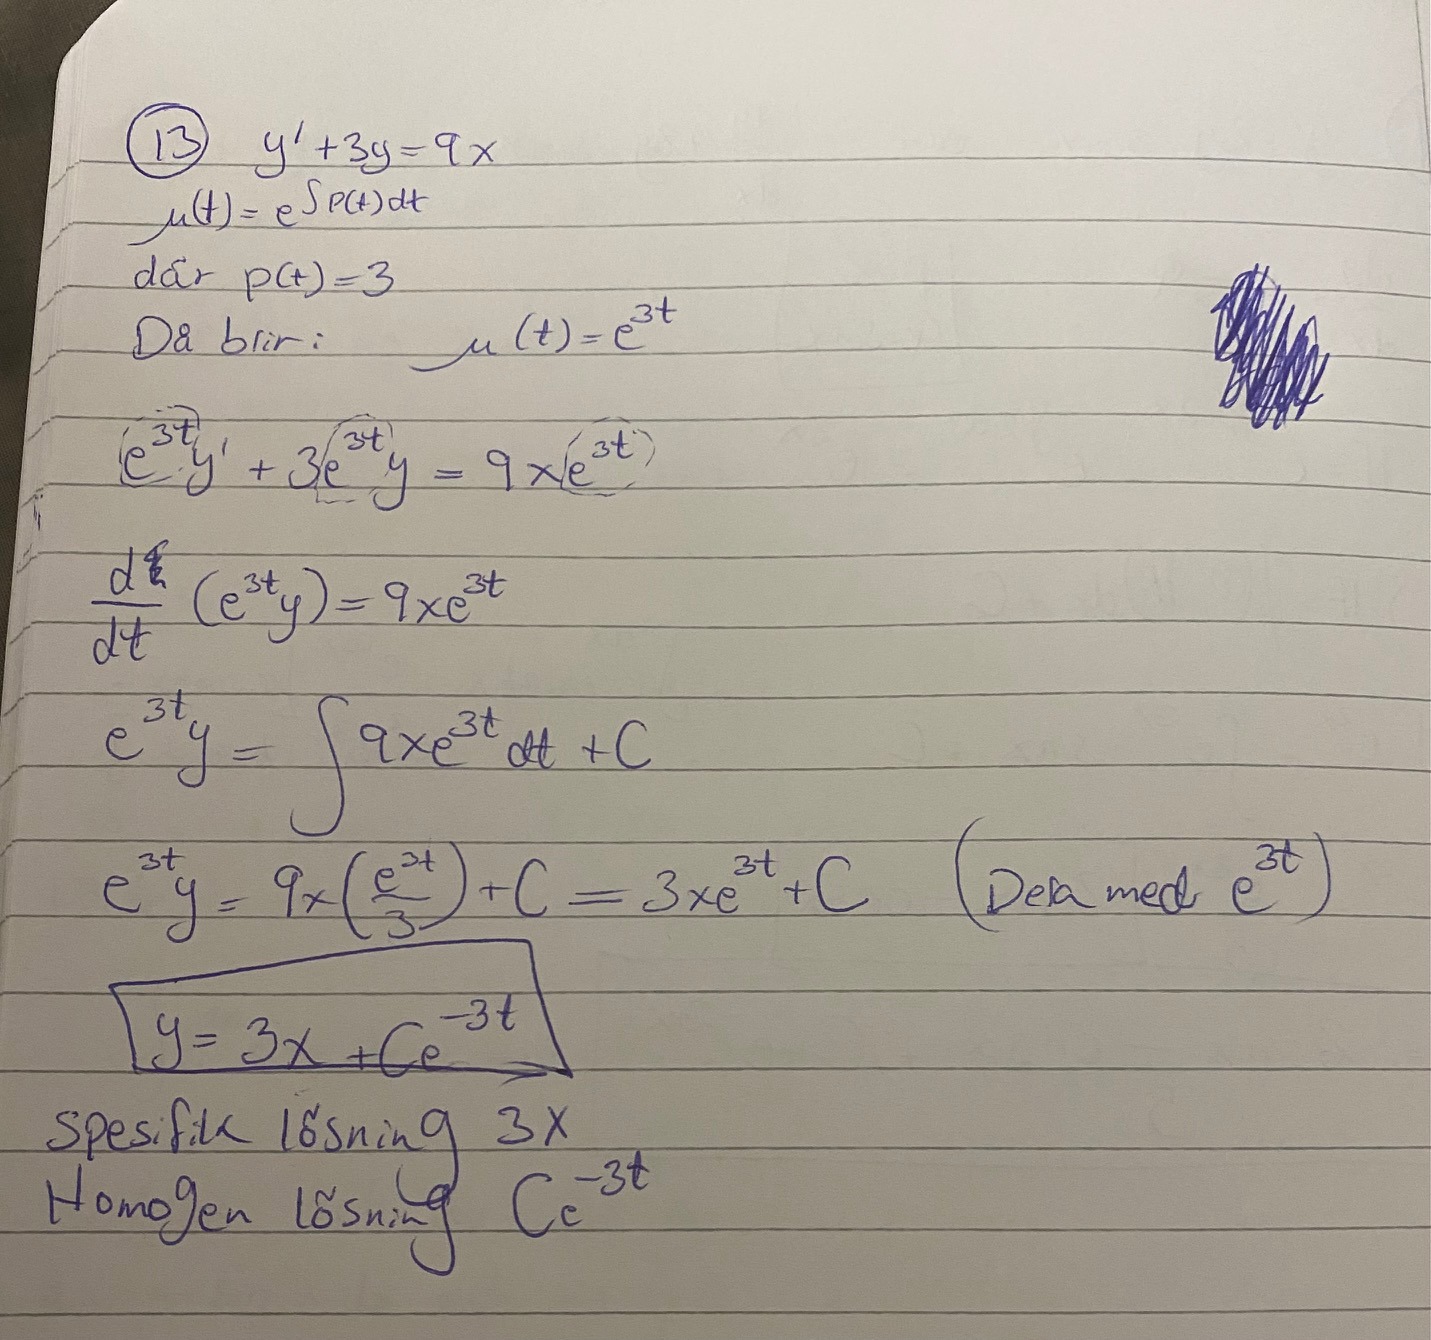 13 y' + 3y = 9x
μ(t) = e^∫P(t)dt
där p(t) = 3
Då blir: μ(t) = e^3t
e^3t y' + 3e^3t y = 9xe^3t
d/dt (e^3t y) = 9xe^3t
e^3t y = ∫ 9xe^3t dt + C
e^3t y = 9x(e^3t/3) + C = 3xe^3t + C (Dela med e^3t)
y = 3x + Ce^-3t
Spesifik lösning 3x
Homogen lösning Ce^-3t